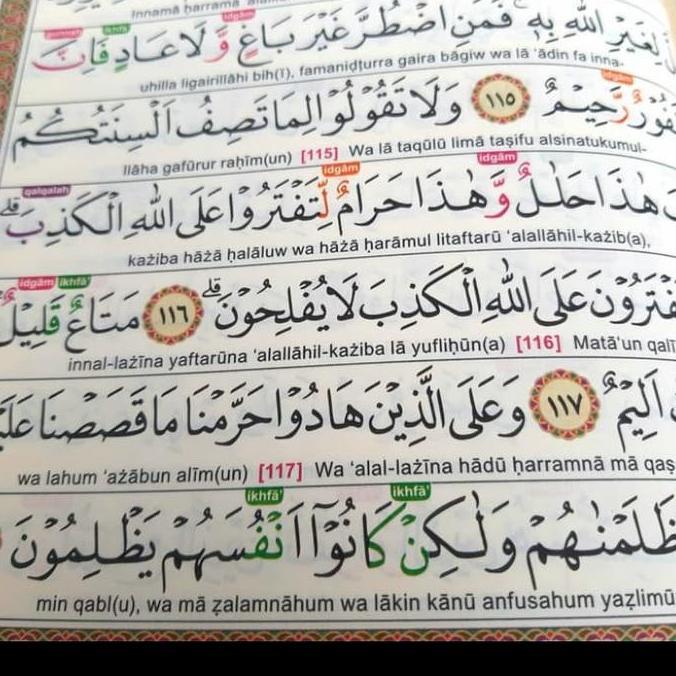 Innamā ḥarrama
لِغَيْرِ اللّٰهِ بِهٖ ۚ فَمَنِ اضْطُرَّ غَيْرَ بَاغٍ وَّلَا عَادٍ فَاِنَّ
idgām ikhfā'
uhilla ligairillāhi bih(ī), famaniḍṭurra gaira bāgiw wa lā 'ādin fa inna-
رَّحِيْمٌ ١١٥ وَلَا تَقُوْلُوْا لِمَا تَصِفُ اَلْسِنَتُكُمُ
idgām
llāha gafūrur raḥīm(un) [115] Wa lā taqūlū limā taṣifu alsinatukumul-
هٰذَا حَلٰلٌ وَّهٰذَا حَرَامٌ لِّتَفْتَرُوْا عَلَى اللّٰهِ الْكَذِبَ ۗ
idgām idgām qalqalah
każiba hāżā ḥalāluw wa hāżā ḥarāmul litaftarū 'alallāhil-każib(a),
يَفْتَرُوْنَ عَلَى اللّٰهِ الْكَذِبَ لَا يُفْلِحُوْنَ ۗ ١١٦ مَتَاعٌ قَلِيْلٌ
ikhfā' idgām
innal-lażīna yaftarūna 'alallāhil-każiba lā yufliḥūn(a) [116] Matā'un
اَلِيْمٌ ١١٧ وَعَلَى الَّذِيْنَ هَادُوْا حَرَّمْنَا مَا قَصَصْنَا
wa lahum 'ażābun alīm(un) [117] Wa 'alal-lażīna hādū ḥarramnā mā
ظَلَمْنٰهُمْ وَلٰكِنْ كَانُوْٓا اَنْفُسَهُمْ يَظْلِمُوْنَ
ikhfā' ikhfā'
min qabl(u), wa mā ẓalamnāhum wa lākin kānū anfusahum yaẓlimū